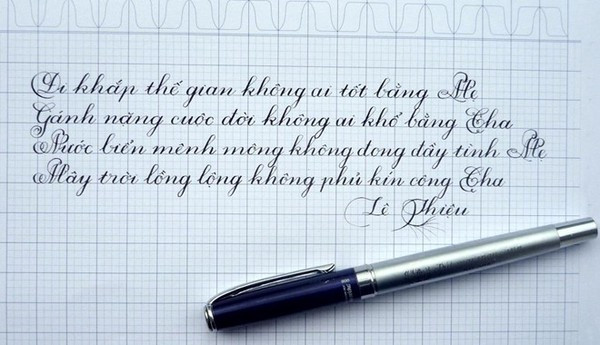 Đi khắp thế gian không ai tốt bằng Mẹ
Gánh nặng cuộc đời không ai khổ bằng Cha
Nước biển mênh mông không đong đầy tình Mẹ
Mây trời lồng lộng không phủ kín công Cha
Lê Thiệu